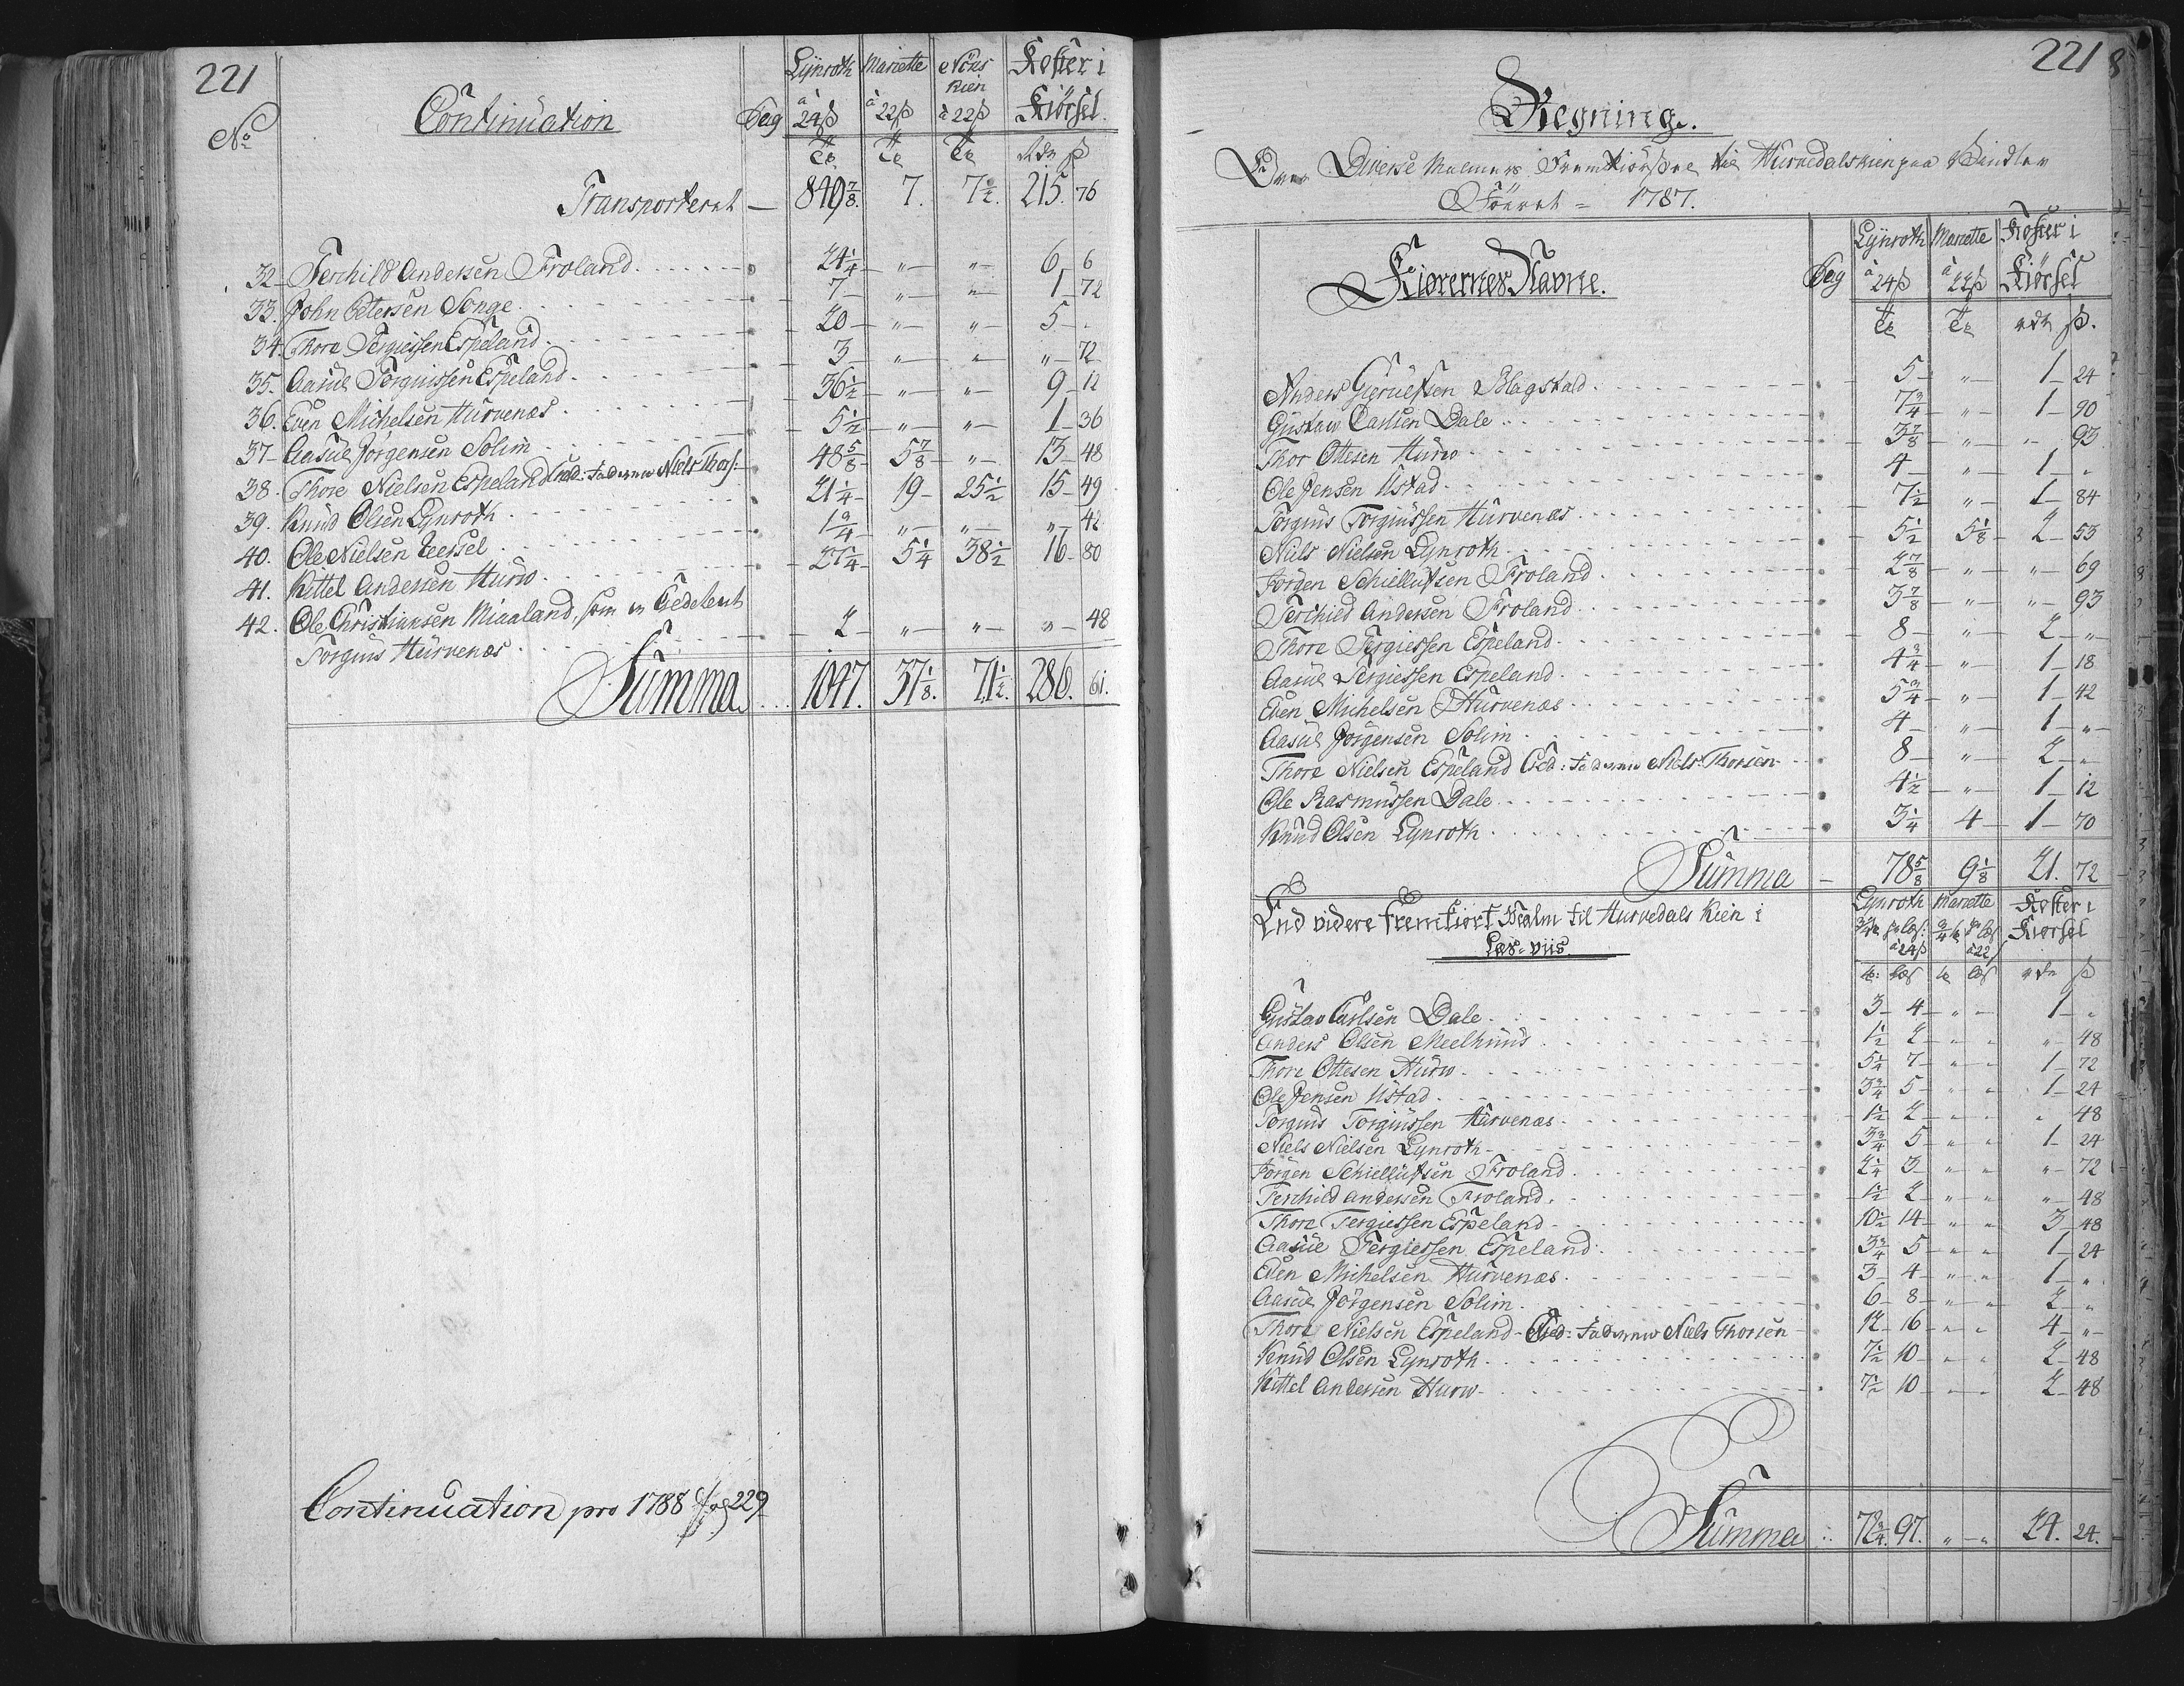 221
No Continuation Pag Lynroth à 24ß Mariette à 22ß Nöes Kien à 22ß Koster i Kiörsel
Tr Tr Tr Rdr ß
Transporteret — 849 7/8. 7. 7 1/2. 215. 76
32 Terchild Andersen Froland 24 1/4 " " 6 6
33. John Petersen Songe 7 " " 1 72
34. Thore Tergiessen Espeland 20 " " 5 -
35. Aasul Torguissen Espeland 3 " " " 72
36. Even Michelsen Hurvenæs 36 1/2 " " 9 12
37 Aasul Jörgensen Solim 5 1/2 " " 1 36
38. Thore Nielsen Espeland Faderen Niels Thors: 48 5/8 5 7/8 " 13 48
39. Knud Olsen Lynroth 21 1/4 19 25 1/2 15 49
40. Ole Nielsen Eersel 1 3/4 " " " 42
41. Kittel Andersen Hurw 27 1/4 5 1/4 38 1/2 16 80
42. Ole Christiansen Miaaland, som er
Torguis Hurvenæs 2 " " " 48
Summa 1047. 37 1/8. 71 1/2. 286. 61.
Continuation pro 1788 pag 229
221
Regning.
Over Diverse Malmers Fremkiörsel til Hurvedals Kien paa Vinter
Föeret = 1787.
Kiörernes Navne. Pag Lynroth à 24ß Mariette à 22ß Koster i Kiörsel
Tr Tr Rdr ß.
Anders Blagstad 5 " 1 24
Gustaw Carlsen Dale 7 3/4 " 1 90
Thor Ottesen Hurw 3 7/8 " " 93
Ole Jensen Ustad 4 " 1 "
Torguis Torguissen Hurvenæs 7 1/2 " 1 84
Niels Nielsen Lynroth 5 1/2 5 1/8 2 53
Jörgen Schiellufsen Froland 2 7/8 " " 69
Terchild Andersen Froland 3 7/8 " " 93
Thore Tergiessen Espeland 8 " 2 "
Aasul Tergiessen Espeland 4 3/4 " 1 18
Even Michelsen Hurvenæs 5 3/4 " 1 42
Aasul Jörgensen Solim 4 " 1 "
Thore Nielsen Espeland Ced: Faderen Niels Thorsen 8 " 2 "
Ole Rasmussen Dale 4 1/2 " 1 12
Knud Olsen Lynroth 3 1/4 4 1 70
Summa 78 5/8 9 1/8 21. 72
End videre fremkiört Malm til Hurvedals Kien i
Læs-viis.
Lynroth 3/4 tr pr læs: à 24ß Mariette 3/4 tr pr læs à 22ß Koster i Kiörsel
tr: læs tr læs rdr ß
Gustav Carlsen Dale 3 4 " " 1 "
Anders Olsen Meelhuus 1 1/2 2 " " " 48
Thore Ottesen Hurw 5 1/4 7 " " 1 72
Ole Jensen Ustad 3 3/4 5 " " 1 24
Torguis Torguissen Hurvenæs 1 1/2 2 " " " 48
Niels Nielsen Lynroth 3 3/4 5 " " 1 24
Jörgen Schiellufsen Froland 2 1/4 3 " " " 72
Terchild Andersen Froland 1 1/2 2 " " " 48
Thore Tergiessen Espeland 10 1/2 14 " " 3 48
Aasul Tergiessen Espeland 3 3/4 5 " " 1 24
Even Michelsen Hurvenæs 3 4 " " 1 "
Aasul Jörgensen Solim 6 8 " " 2 "
Thore Nielsen Espeland - Ced: Faderen Niels Thorsen 12 16 " " 4 "
Knud Olsen Lynroth 7 1/2 10 " " 2 48
Kittel Andersen Hurw 7 1/2 10 " " 2 48
Summa 72 3/4. 97. " " 24. 24.